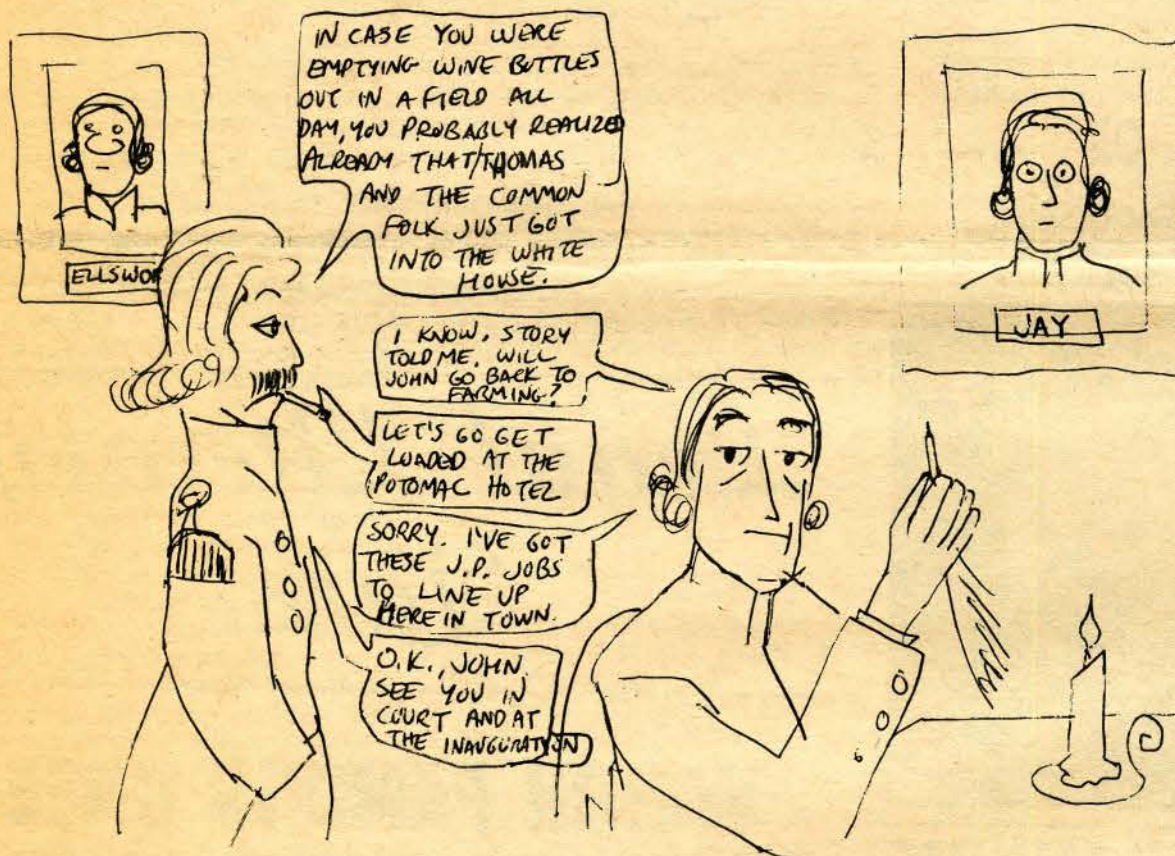 IN CASE YOU WERE
EMPTYING WINE BOTTLES
OUT IN A FIELD ALL
DAY, YOU PROBABLY REALIZED
ALREADY THAT THOMAS
AND THE COMMON
FOLK JUST GOT
INTO THE WHITE
HOUSE.
ELLSWOR
JAY
I KNOW. STORY
TOLD ME. WILL
JOHN GO BACK TO
FARMING?
LET'S GO GET
LOADED AT THE
POTOMAC HOTEL
SORRY. I'VE GOT
THESE J.P. JOBS
TO LINE UP
HERE IN TOWN.
O.K., JOHN.
SEE YOU IN
COURT AND AT
THE INAUGURATION